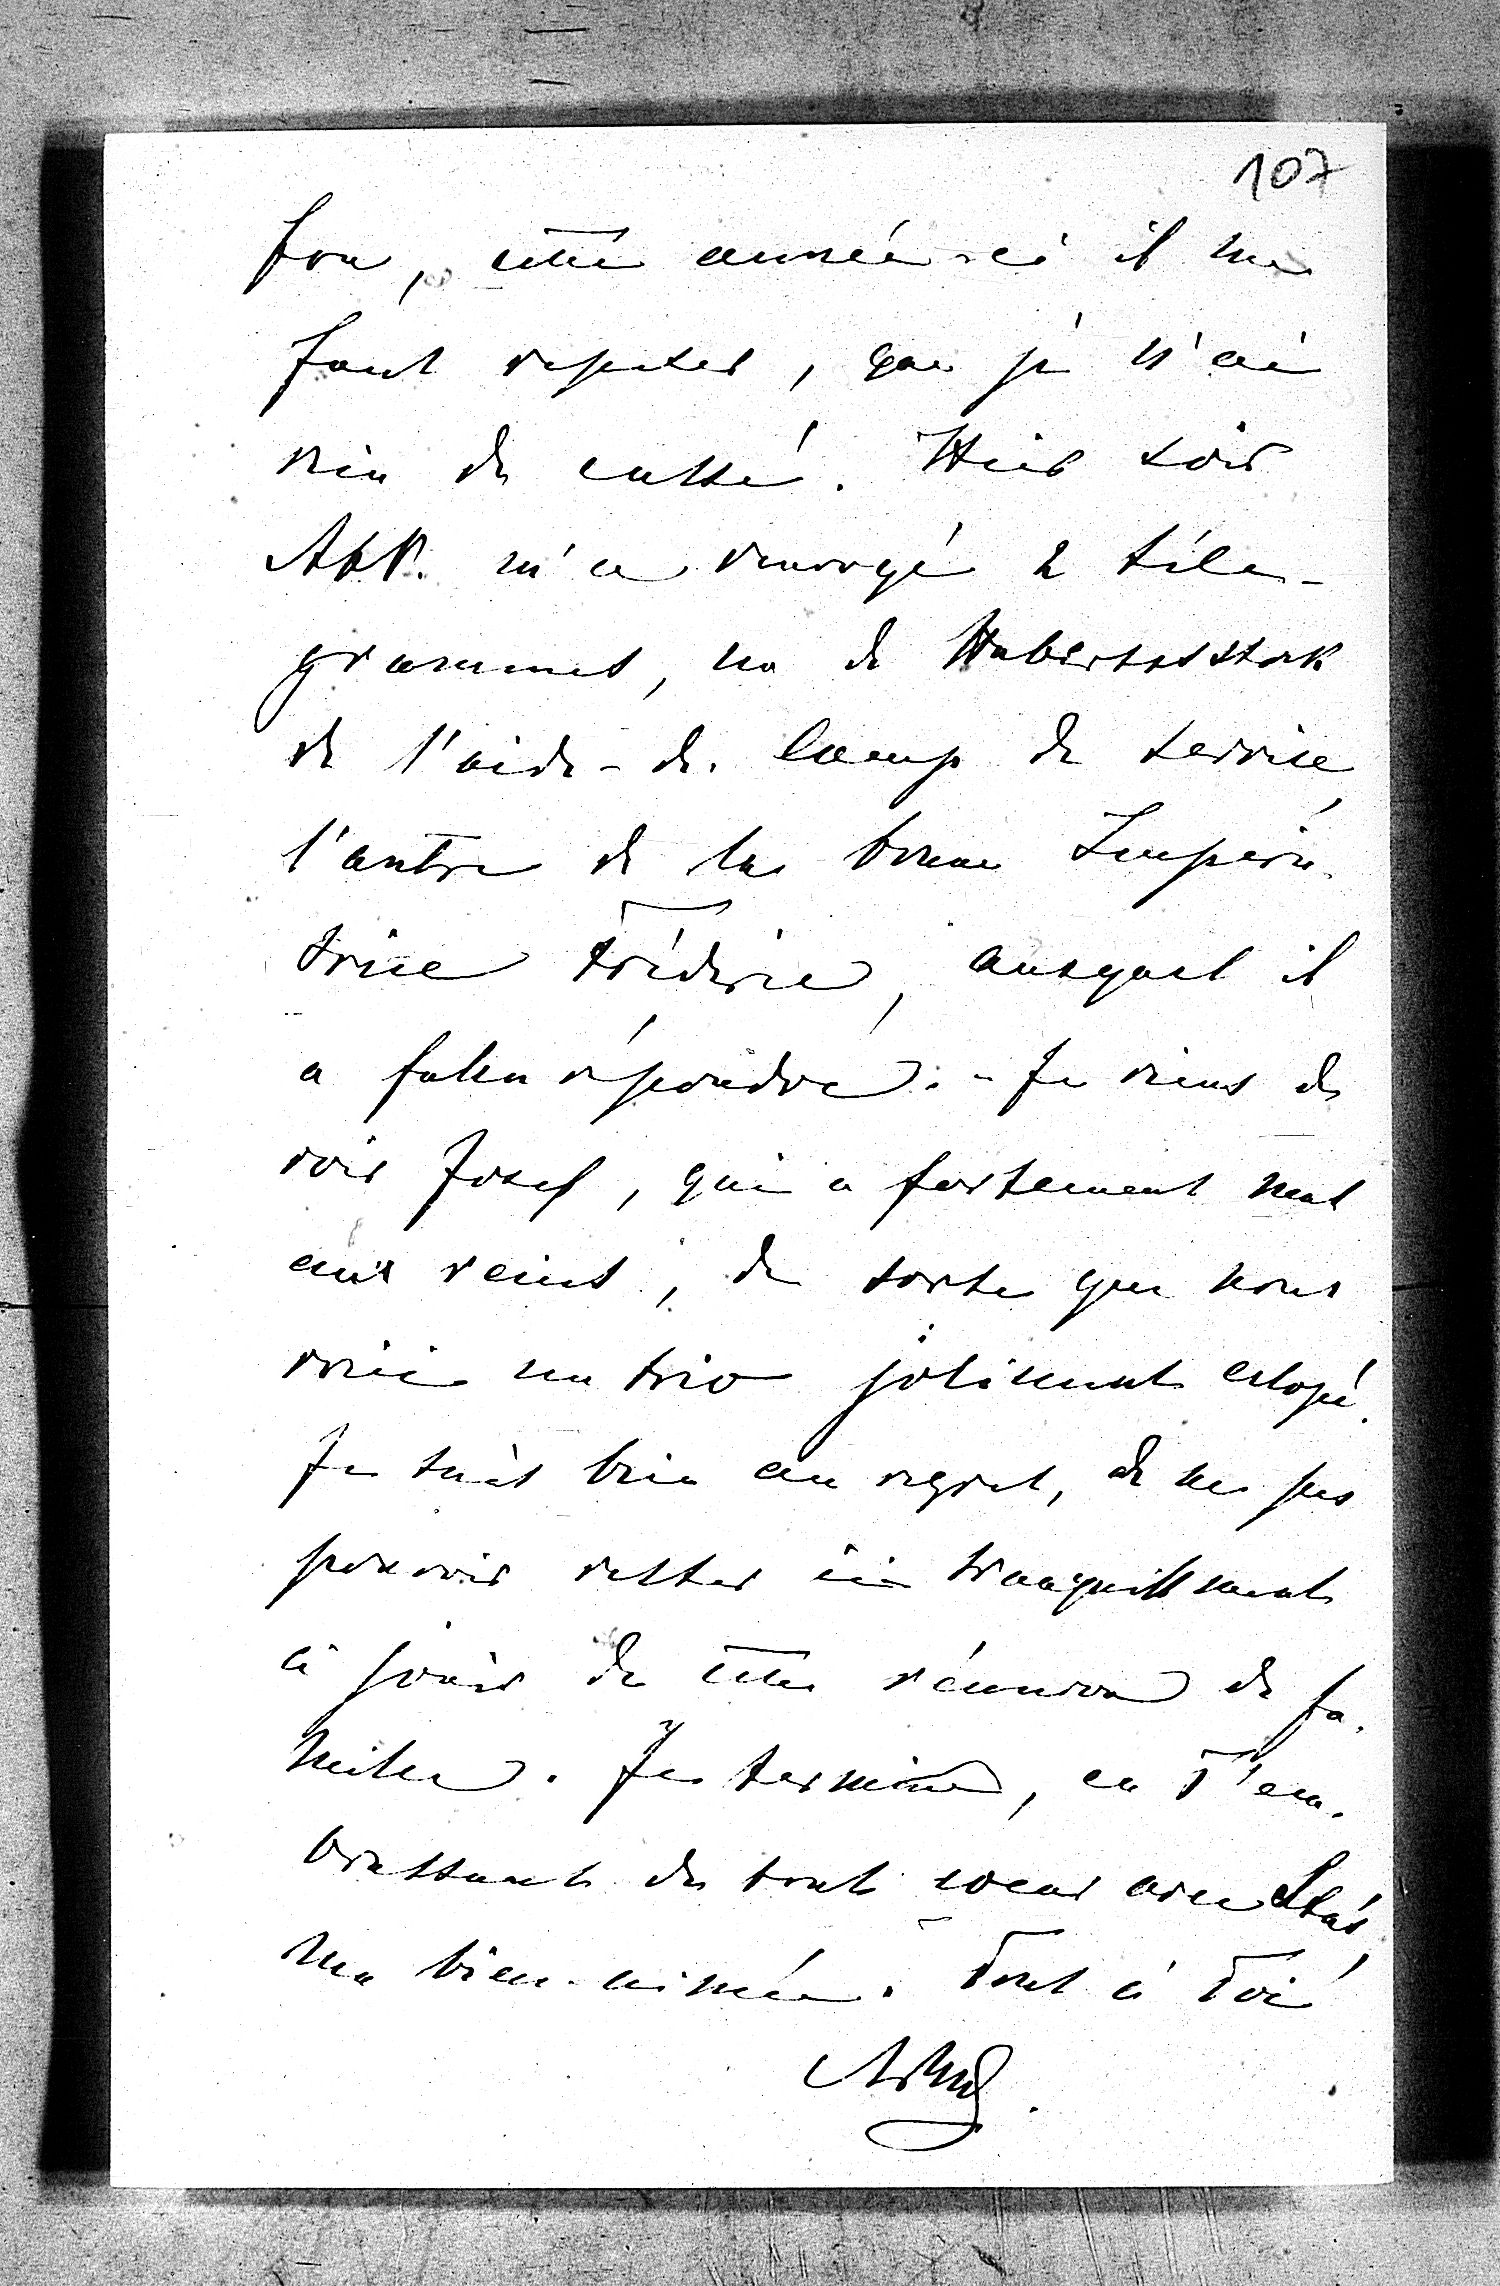 107
fou, cette année-ci il me
faut repeter, que je n'ai
rien de cassé. Hier soir
m'a renvoyé 2 télé-
grammes, un de Hubertusstock
de l'aide-de-camp de service,
l'autre de la bonne Impéra-
trice Fréderic, auxquel il
a fallu répondre. - Je viens de
voir Josef, qui a fortement mal
aux reins, de sorte que nous
voici un trio joliment eclopé.
Je suis bien au regret, de ne pas
pouvoir rester ici tranquillement
à jouir de cette réunion de fa-
mille. Je termine, en T'em-
brassant de tout coeur avec Stas,
ma bien-aimée. Tout à Toi